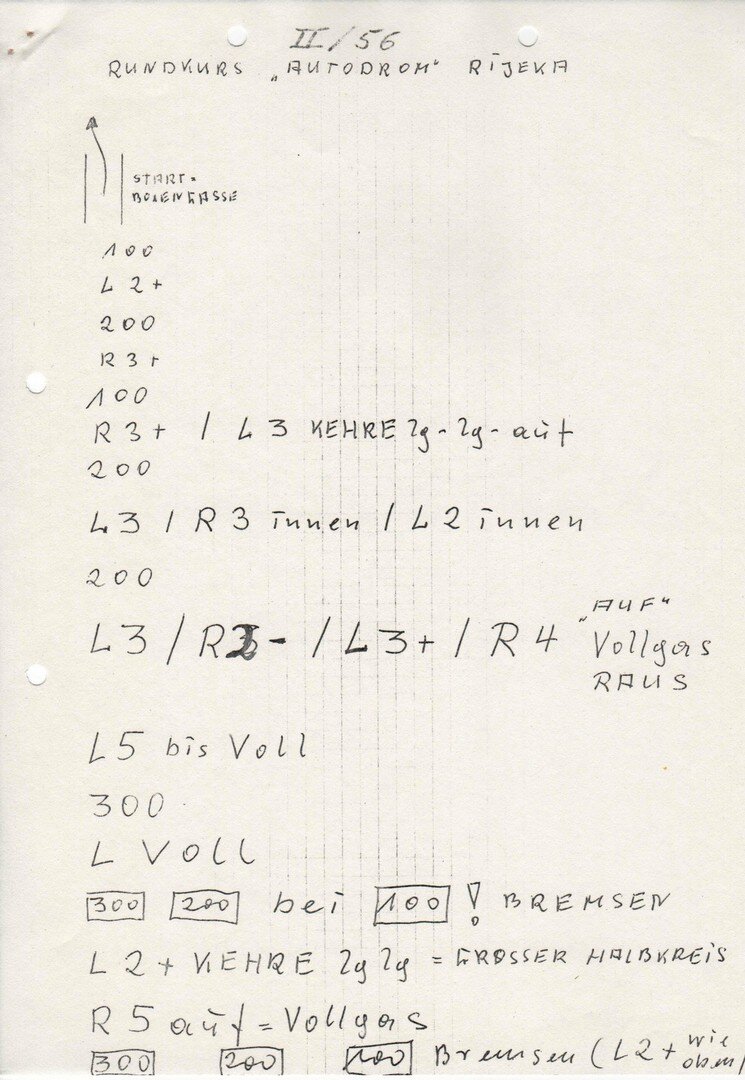 II/56
RUNDKURS „AUTODROM" RIJEKA
START-
BOXENGASSE
100
L 2+
200
R 3+
100
R 3+ / L 3 KEHRE lg-lg-auf
200
L 3 / R 3 innen / L 2 innen
200
L3 / R3- / L3+ / R4 „AUF"
Vollgas
RAUS
L5 bis Voll
300
L VOLL
300 200 bei 100 ! BREMSEN
L 2+ KEHRE lg lg = GROSSER HALBKREIS
R 5 auf = Vollgas
300 200 100 Bremsen (L2+ wie
oben)